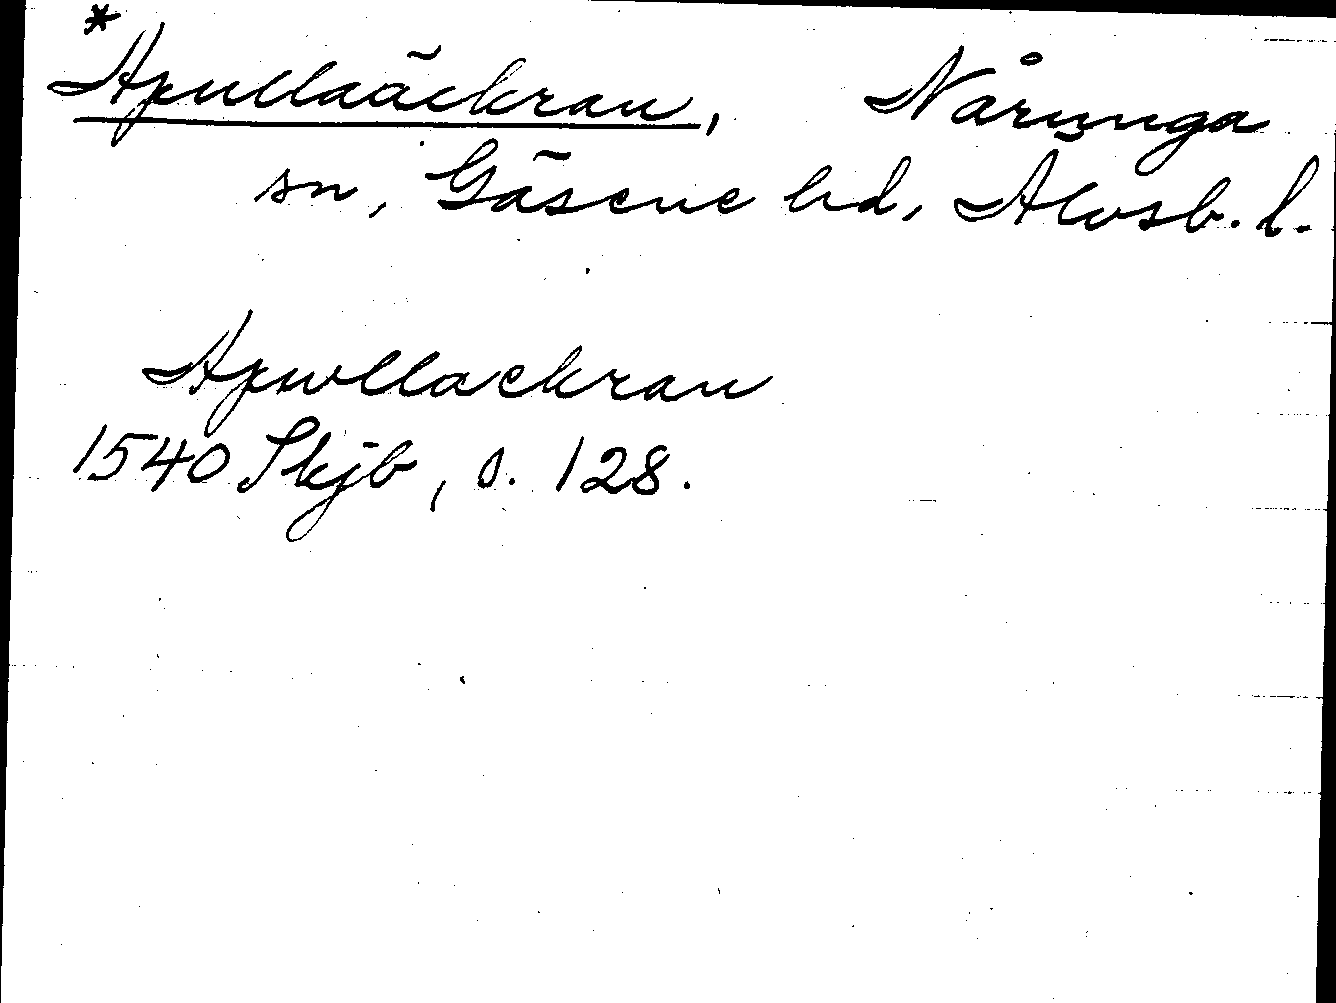 *Apullaäckran, Nårunga
sn, Gäsene hd, Älvsb. l.
Apwllackran
1540 Skjb, s. 128.